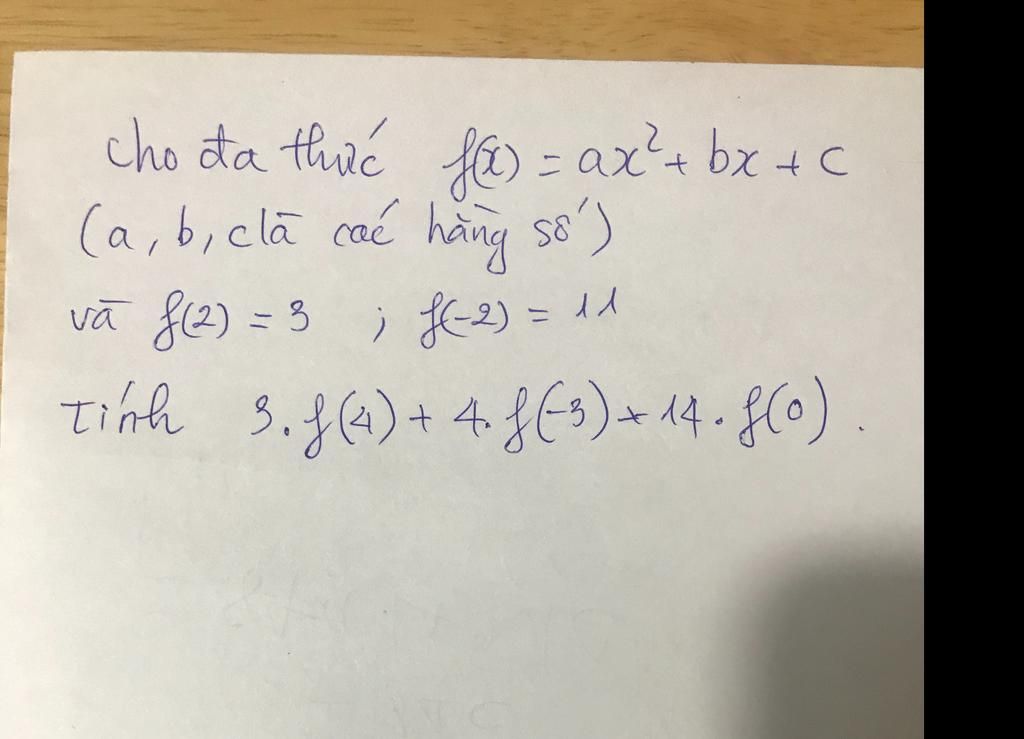 cho đa thức f(x) = ax² + bx + c
(a, b, c là các hằng số)
và f(2) = 3 ; f(-2) = 11
Tính 3.f(4) + 4.f(-3) + 14.f(0).